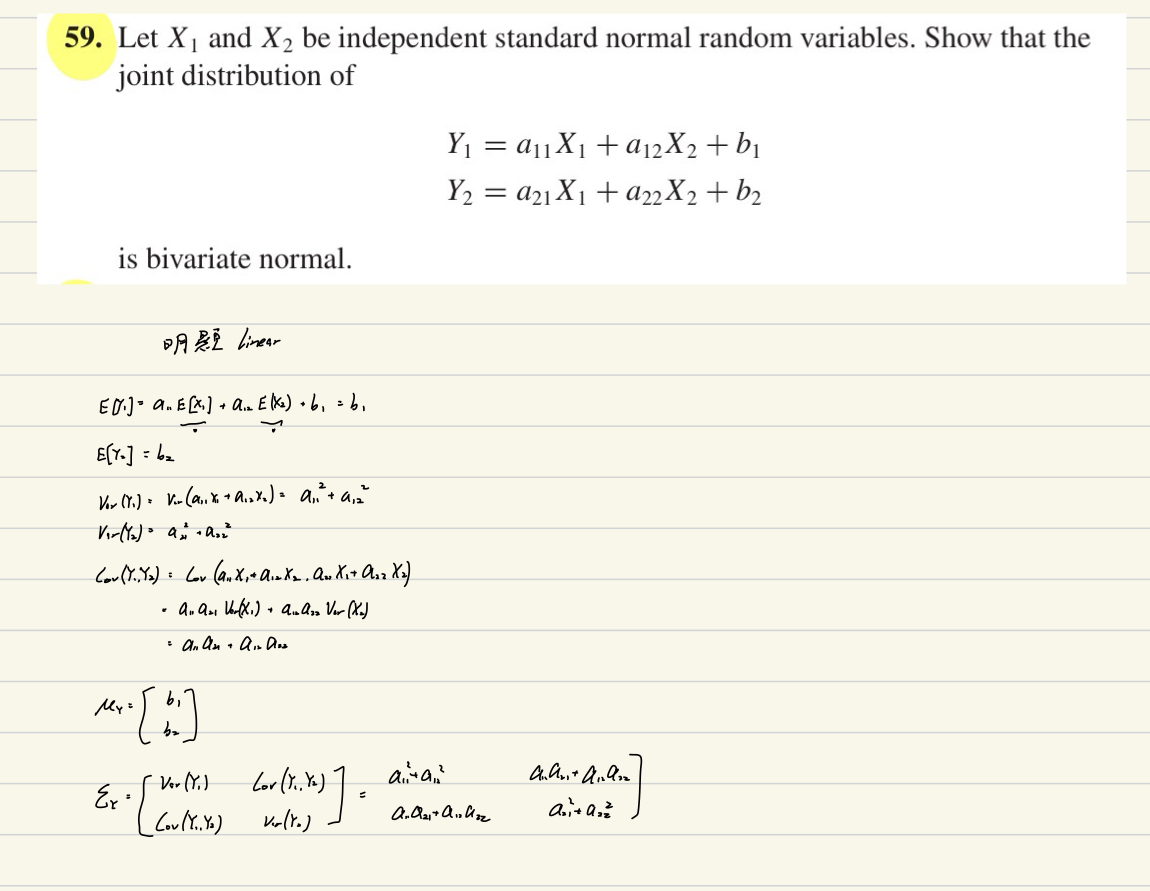 59. Let X₁ and X₂ be independent standard normal random variables. Show that the
joint distribution of
Y₁ = a₁₁X₁ + a₁₂X₂ + b₁
Y₂ = a₂₁X₁ + a₂₂X₂ + b₂
is bivariate normal.
明顯 linear
E[Y₁] = a₁₁ E[X₁] + a₁₂ E(X₂) + b₁ = b₁
E[Y₂] = b₂
Var(Y₁) = Var(a₁₁X₁ + a₁₂X₂) = a₁₁² + a₁₂²
Var(Y₂) = a₂₁² + a₂₂²
Cov(Y₁,Y₂) = Cov(a₁₁X₁ + a₁₂X₂, a₂₁X₁ + a₂₂X₂)
= a₁₁a₂₁ Var(X₁) + a₁₂a₂₂ Var(X₂)
= a₁₁a₂₁ + a₁₂a₂₂
μ_Y = [ b₁
b₂ ]
Σ_Y = [ Var(Y₁) Cov(Y₁,Y₂) ] = a₁₁² + a₁₂² a₁₁a₂₁ + a₁₂a₂₂ ]
Cov(Y₁,Y₂) Var(Y₂) a₁₁a₂₁ + a₁₂a₂₂ a₂₁² + a₂₂²